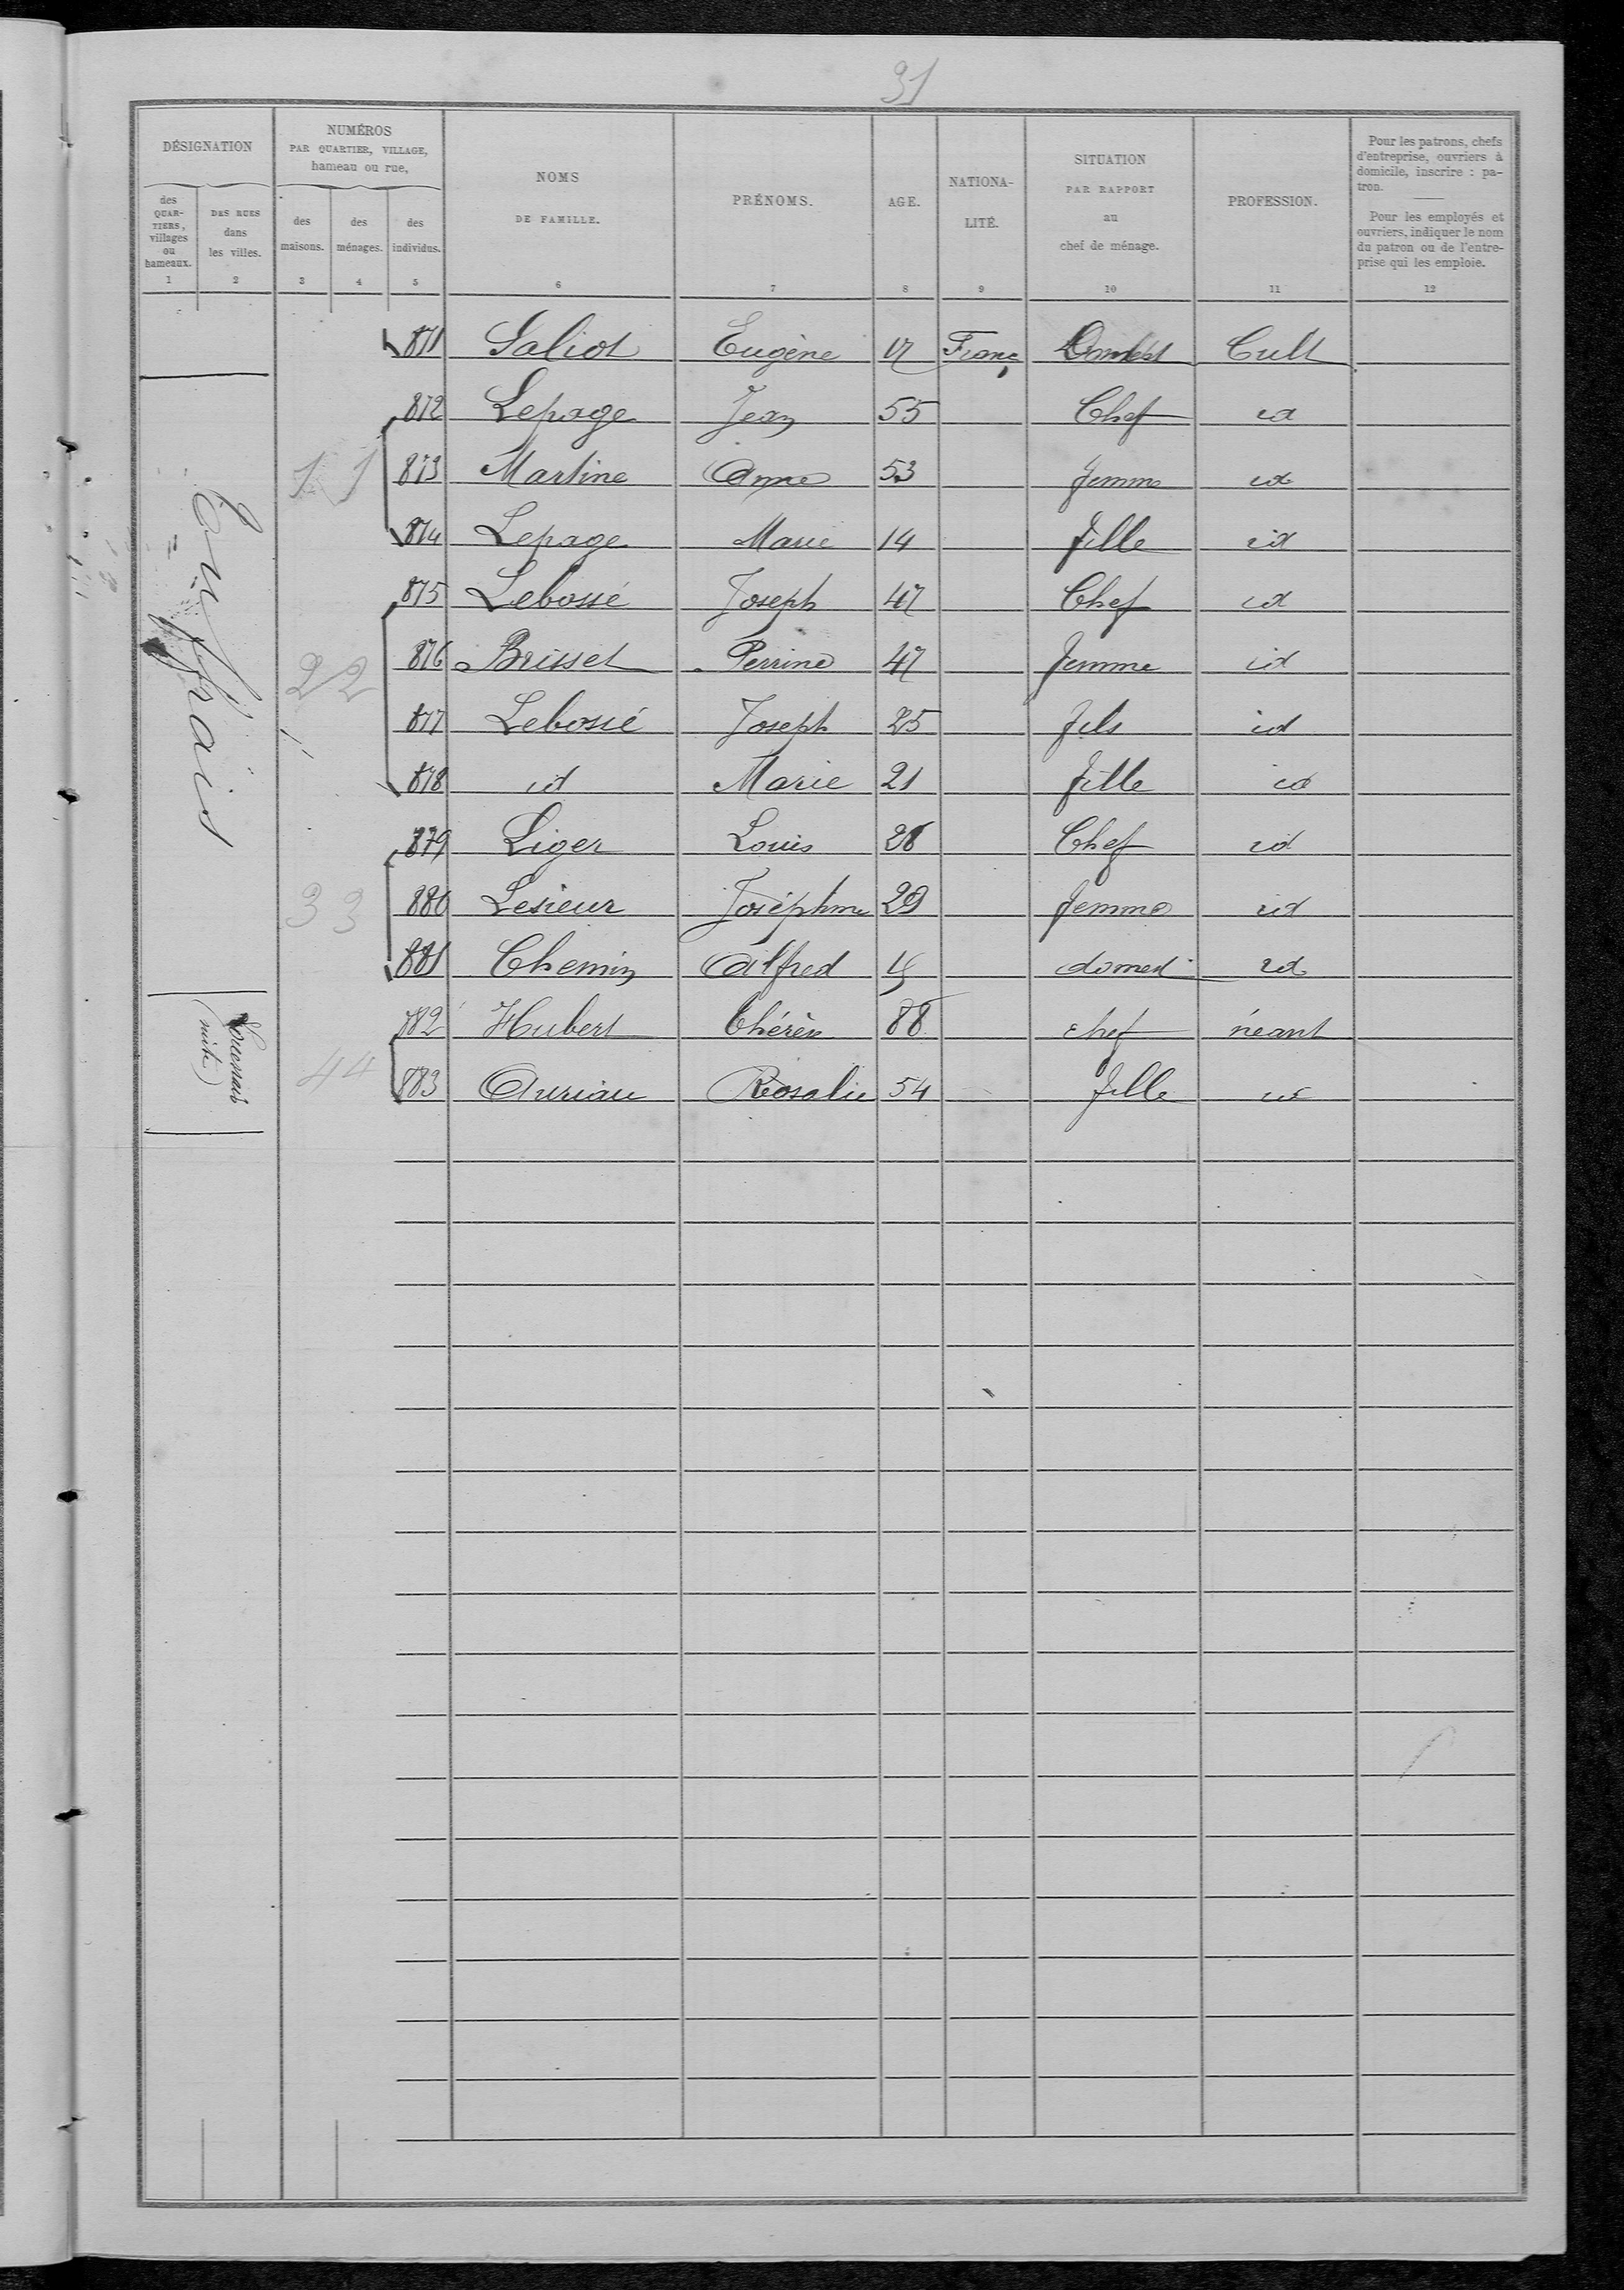 31
DÉSIGNATION
NUMÉROS
PAR QUARTIER, VILLAGE,
hameau ou rue,
NOMS
DE FAMILLE.
PRÉNOMS.
AGE.
NATIONA-
LITÉ.
SITUATION
PAR RAPPORT
au
chef de ménage.
PROFESSION.
Pour les patrons, chefs
d'entreprise, ouvriers à
domicile, inscrire : pa-
tron.
Pour les employés et
ouvriers, indiquer le nom
du patron ou de l'entre-
prise qui les emploie.
des
QUAR-
TIERS,
villages
ou
hameaux.
DES RUES
dans
les villes.
des
maisons.
des
ménages.
des
individus.
1 2 3 4 5 6 7 8 9 10 11 12
871 Saliot Eugène 17 Franç Domest Cult
872 Lepage Jean 55 Chef id
1 1 873 Martine Anne 53 femme id
874 Lepage Marie 14 fille id
875 Lebossé Joseph 47 Chef id
2 2 876 Brisset Perrine 47 femme id
877 Lebossé Joseph 25 fils id
878 id Marie 21 fille id
879 Liger Louis 28 Chef id
3 3 880 Lesieur Joséphine 29 femme id
881 Chemin Alfred 15 domest id
(suite)
882 Hubert Thérèse 88 chef néant
4 4 883 Auriau Rosalie 54 fille id